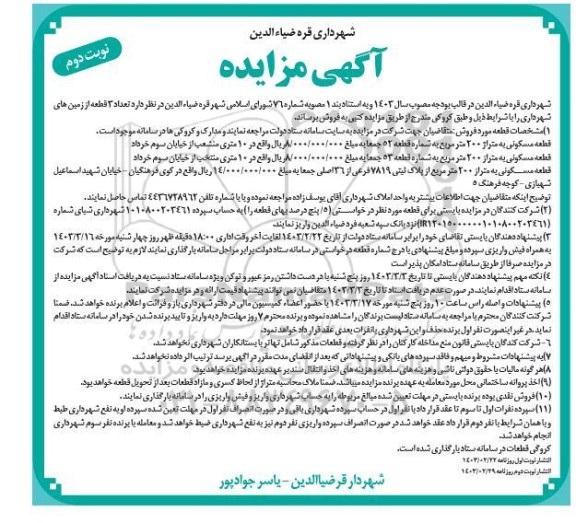 شهرداری قره ضیاءالدین
نوبت دوم
آگهی مزایده
شهرداری قره ضیاء الدین در قالب بودجه مصوب سال ۱۴۰۳ و به استناد بند ۱ مصوبه شماره ۷۶ شورای اسلامی شهر قره ضیاءالدین در نظر دارد تعداد ۳ قطعه از زمین های
شهرداری را با شرایط ذیل و طبق کروکی مندرج از طریق مزایده کتبی به فروش برساند.
۱)مشخصات قطعه مورد فروش: متقاضیان جهت شرکت در مزایده به سایت سامانه ستاد دولت مراجعه نمایند و مدارک و کروکی ها در سامانه موجود است.
قطعه مسکونی به متراژ ۲۰۰ متر مربع به شماره قطعه ۵۲ جمعا به مبلغ ۸/۰۰۰/۰۰۰/۰۰۰ ریال واقع در ۱۰ متری منشعب از خیابان سوم خرداد
قطعه مسکونی به متراژ ۲۰۰ متر مربع به شماره قطعه ۵۳ جمعا به مبلغ ۸/۰۰۰/۰۰۰/۰۰۰ ریال واقع در ۱۰ متری منتخب از خیابان سوم خرداد
قطعه مسکونی به متراژ ۲۰۰ متر مربع از پلاک ثبتی ۷۸۱۹ فرعی از ۳۶ اصلی جمعا به مبلغ ۱۴/۰۰۰/۰۰۰/۰۰۰ ریال واقع در کوی فرهنگیان - خیابان شهید اسماعیل
شهبازی - کوچه فرهنگ ۵
توضیح اینکه متقاضیان جهت اطلاعات بیشتر به واحد املاک شهرداری آقای یوسف زاده مراجعه نموده و یا با شماره تلفن ۰۴۴۳۶۷۲۸۹۶۲ تماس حاصل نمایند.
۲) شرکت کنندگان در مزایده بایستی برای قطعه مورد نظر در خواستی (۵٪ پنج درصد بهای قطعه را) به حساب سپرده ۱۰۱۰۸۰۰۲۰۳۴۶۱ شهرداری شبای شماره
نزد بانک سپه شعبه قره ضیاء الدین واریز نمایند.
۳) پیشنهاد دهندگان بایستی تقاضای خود را برابر سامانه ستاد دولت از تاریخ ۱۴۰۳/۲/۲۲ لغایت آخر وقت اداری ۱۸:۰۰ دقیقه ظهر روز چهار شنبه مورخه ۱۴۰۳/۳/۱۶
به همراه فیش واریزی سپرده و مبلغ پیشنهادی با درج شماره قطعه درخواستی در سامانه ستاد دولت برابر مراحل سامانه بارگذاری نمایند لازم به توضیح است که شرکت
در مزایده صرفا از طریق سامانه ستاد امکان پذیر است
۴) نکته مهم پیشنهاد دهندگان بایستی تا تاریخ ۱۴۰۳/۳/۳ روز پنج شنبه با در دست داشتن رمز عبور و توکن ویژه سامانه ستاد نسبت به دریافت اسناد آگهی مزایده از
سامانه ستاد اقدام نمایند. در صورت عدم دریافت اسناد تا تاریخ ۱۴۰۳/۳/۳ متقاضیان نمی توانند پیشنهاد قیمت ارائه و در مزایده شرکت نمایند.
۵) پیشنهادات واصله راس ساعت ۱۰ روز پنج شنبه مورخه ۱۴۰۳/۳/۱۷ با حضور اعضاء کمیسیون مالی در دفتر شهرداری باز و قرائت و اعلام برنده خواهد شد. ضمنا
شرکت کنندگان محترم با مراجعه به سامانه ستاد لیست برندگان را مشاهده نموده و برنده محترم ۷ روز مهلت دارد به واریز و تایید برنده شدن خود را در سامانه ستاد اقدام
نماید. در غیر اینصورت نفر اول برنده حذف و این شهرداری با نفرات بعدی عقد قرار داد خواهد نمود.
۶- شرکت کنندگان بایستی قانون منع مداخله کارکنان را در نظر گرفته و قطعات مذکور شامل تهاتر با بستانکاران شهرداری نخواهد شد.
۷)به پیشنهادات مشروط و مبهم و فاقد سپرده های بانکی و پیشنهاداتی که بعد از انقضای مدت مقرر در آگهی برسد ترتیب اثر داده نخواهد شد.
۸)هر گونه مالیات یا حقوق دولتی ناشی و هزینه های سامانه و هزینه های اخذ و انتقال سند بر عهده برنده مزایده خواهد بود.
۹)اخذ پروانه ساختمانی محل مورد معامله به عهده برنده مزایده میباشد. ضمنا ملاک محاسبه متراژ از لحاظ کسری و مازاد قطعات بعد از تحویل قطعه خواهد بود.
۱۰) فروش نقدی بوده برنده بایستی در مهلت تعیین شده مبالغ مربوطه را به حساب شهرداری واریز و فیش واریزی را در سامانه بارگذاری نمایند.
۱۱) سپرده نفرات اول تا سوم تا عقد قرار داد با نفر اول در حساب سپرده شهرداری باقی و در صورت انصراف نفر اول در مهلت تعیین شده سپرده او به نفع شهرداری ضبط
و با همان شرایط با نفر دوم قرار داد عقد خواهد شد در صورت انصراف سپرده واریزی نفر دوم نیز به نفع شهرداری ضبط خواهد شد و معامله با برنده نفر سوم شهرداری
انجام خواهد شد.
کروکی قطعات در سامانه ستاد بارگذاری شده است.
انتشار نوبت اول روزنامه ۱۴۰۳/۰۲/۲۲
انتشار نوبت دوم روزنامه ۱۴۰۳/۰۲/۲۹
شهردار قره ضیاالدین - یاسر جوادپور